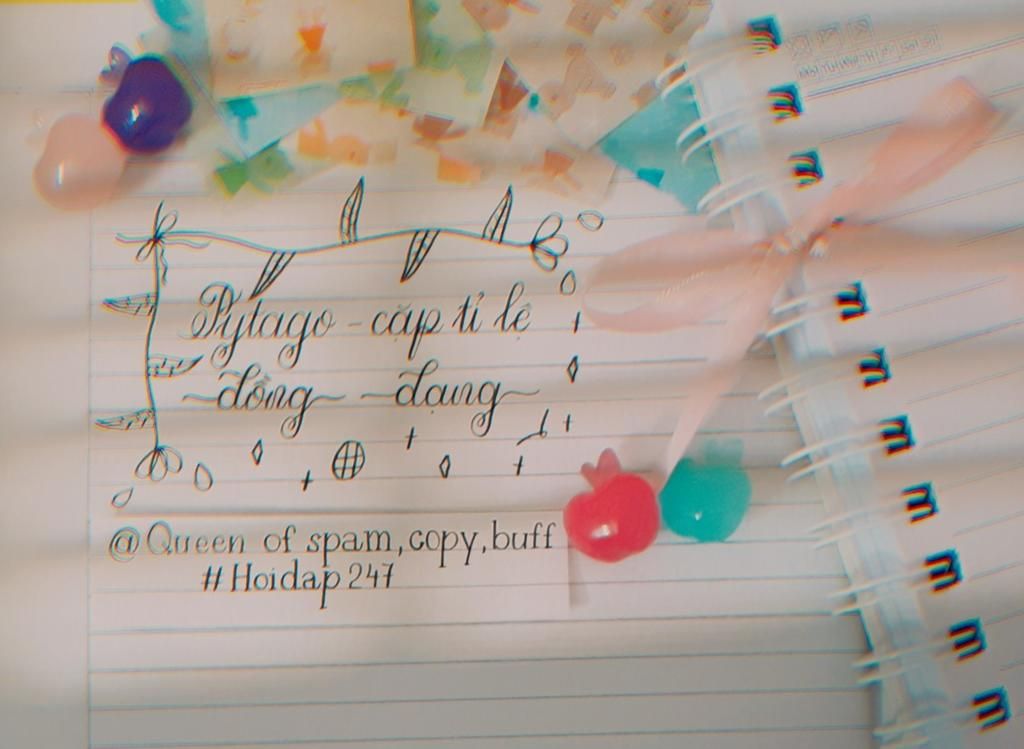 Pytago - cặp tỉ lệ
~đồng~ ~dạng~
@Queen of spam, copy, buff
#Hoidap247